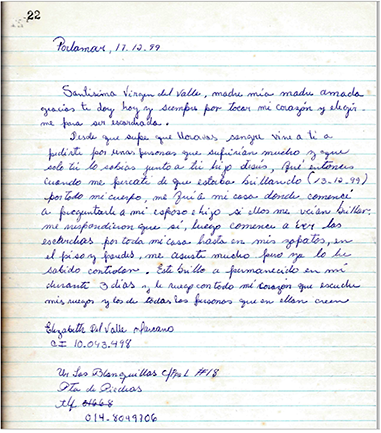 22
Porlamar, 17.12.99
Santísima Virgen del Valle, madre mía madre amada
gracias te doy hoy y siempre por tocar mi corazón y elegir-
me para ser escarchada.
Desde que supe que lloravas sangre vine a ti a
pedirte por unas personas que sufrirían mucho y que
solo tú lo sabías junto a tu hijo Jesús, fué entonces
cuando me percate de que estaba brillando (13-12-99)
por todo mi cuerpo, me fuí a mi casa donde comencé
a preguntarle a mi esposo e hijo si ellos me veían brillar,
me respondieron que si, luego comence a ver las
escarchas por toda mi casa hasta en mis zapatos, en
el piso y paredes, me asusté mucho pero ya lo he
sabido controlar. Este brillo a permanecido en mi
durante 3 días y le ruego con todo mi corazón que escuche
mis ruegos y los de todas las personas que en ella creen
Elizabeth Del Valle
C.I 10.043.498
Ur Las Blanquillas c/ #18
Pta de Piedras
tlf.
014-8049706